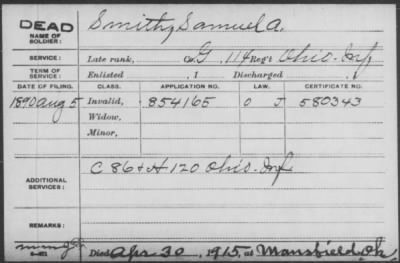 DEAD
NAME OF SOLDIER: Smith, Samuel A.
SERVICE: Late rank, Co. G, 114 Reg't Ohio Inf
TERM OF SERVICE: Enlisted , 1 Discharged
DATE OF FILING. CLASS. APPLICATION NO. LAW. CERTIFICATE NO.
1890 Aug 5 Invalid, 854165 O J 580343
Widow,
Minor,
ADDITIONAL SERVICES: C 86 & H 120 Ohio Inf
REMARKS:
Died Apr 30, 1915, at Mansfield, O.